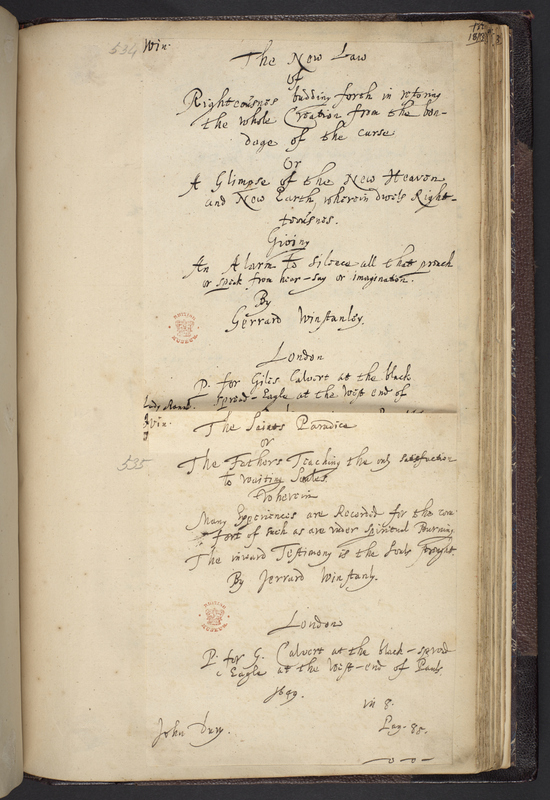 534 Win.
The New Law
of
Righteousnes budding forth in restoring
the whole Creation from the bon-
dage of the curse
Or
A Glimpse of the New Heaven
and New Earth, wherein dwels Right-
eousnes.
Giving
An Alarm to silence all that preach
or speak from hear-say or imagination.
By
Gerrard Winstanley.
BRITISH MUSEUM
London
P. for Giles Calvert at the black
Spred-Eagle at the West end of
Win.
The Saints Paradice
or
535
The Fathers Teaching the only satisfaction
to waiting Soules.
Wherein
Many Experiences are Recorded for the com
fort of such as are under spirituall Burning
The inward Testimony is the Souls strength.
By Jerrard Winstanly.
BRITISH MUSEUM
London
P. for G. Calvert at the black-spred
Eagle at the West-end of Pauls.
in 8.
Pag. 80.
John Dury.